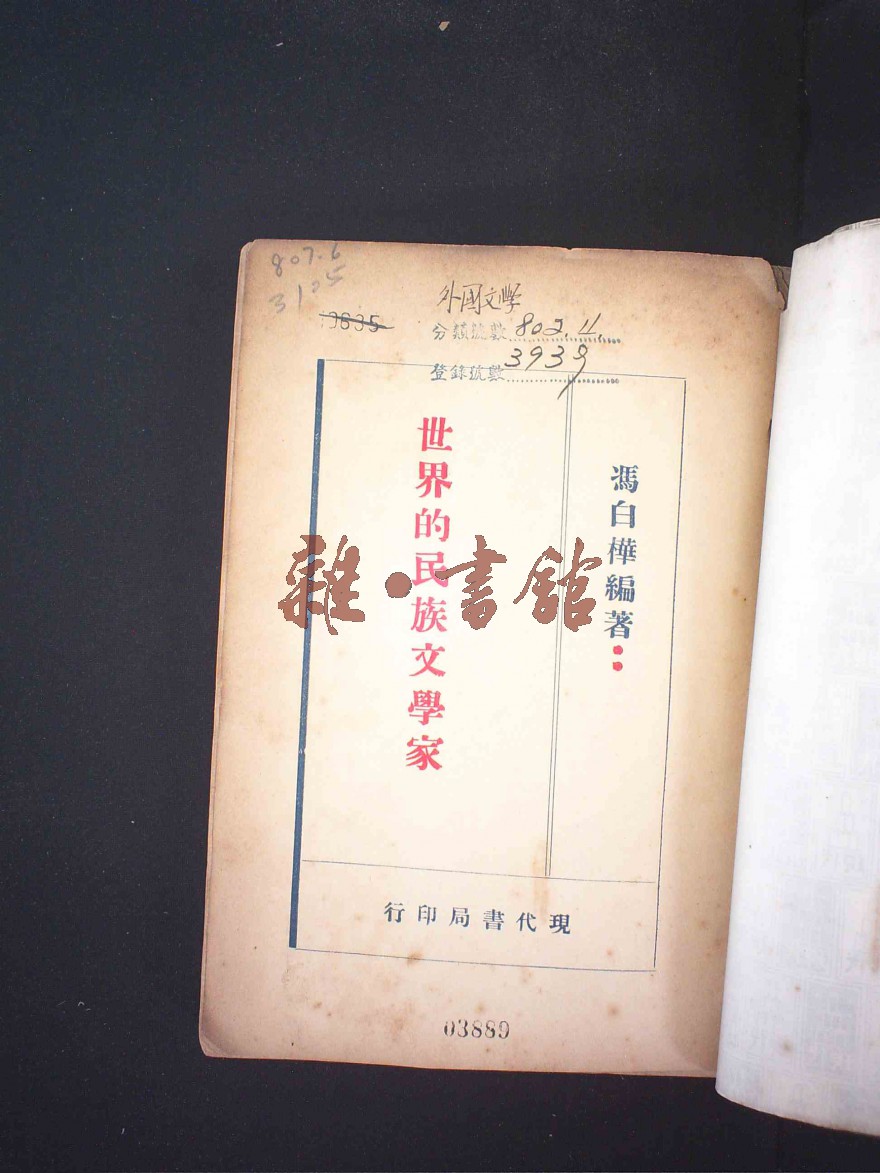 807.6
3105
外國文學
分類號數 802.11
登錄號數 3939
馮白樺編著
世界的民族文學家
雜·書館
現代書局印行
03889